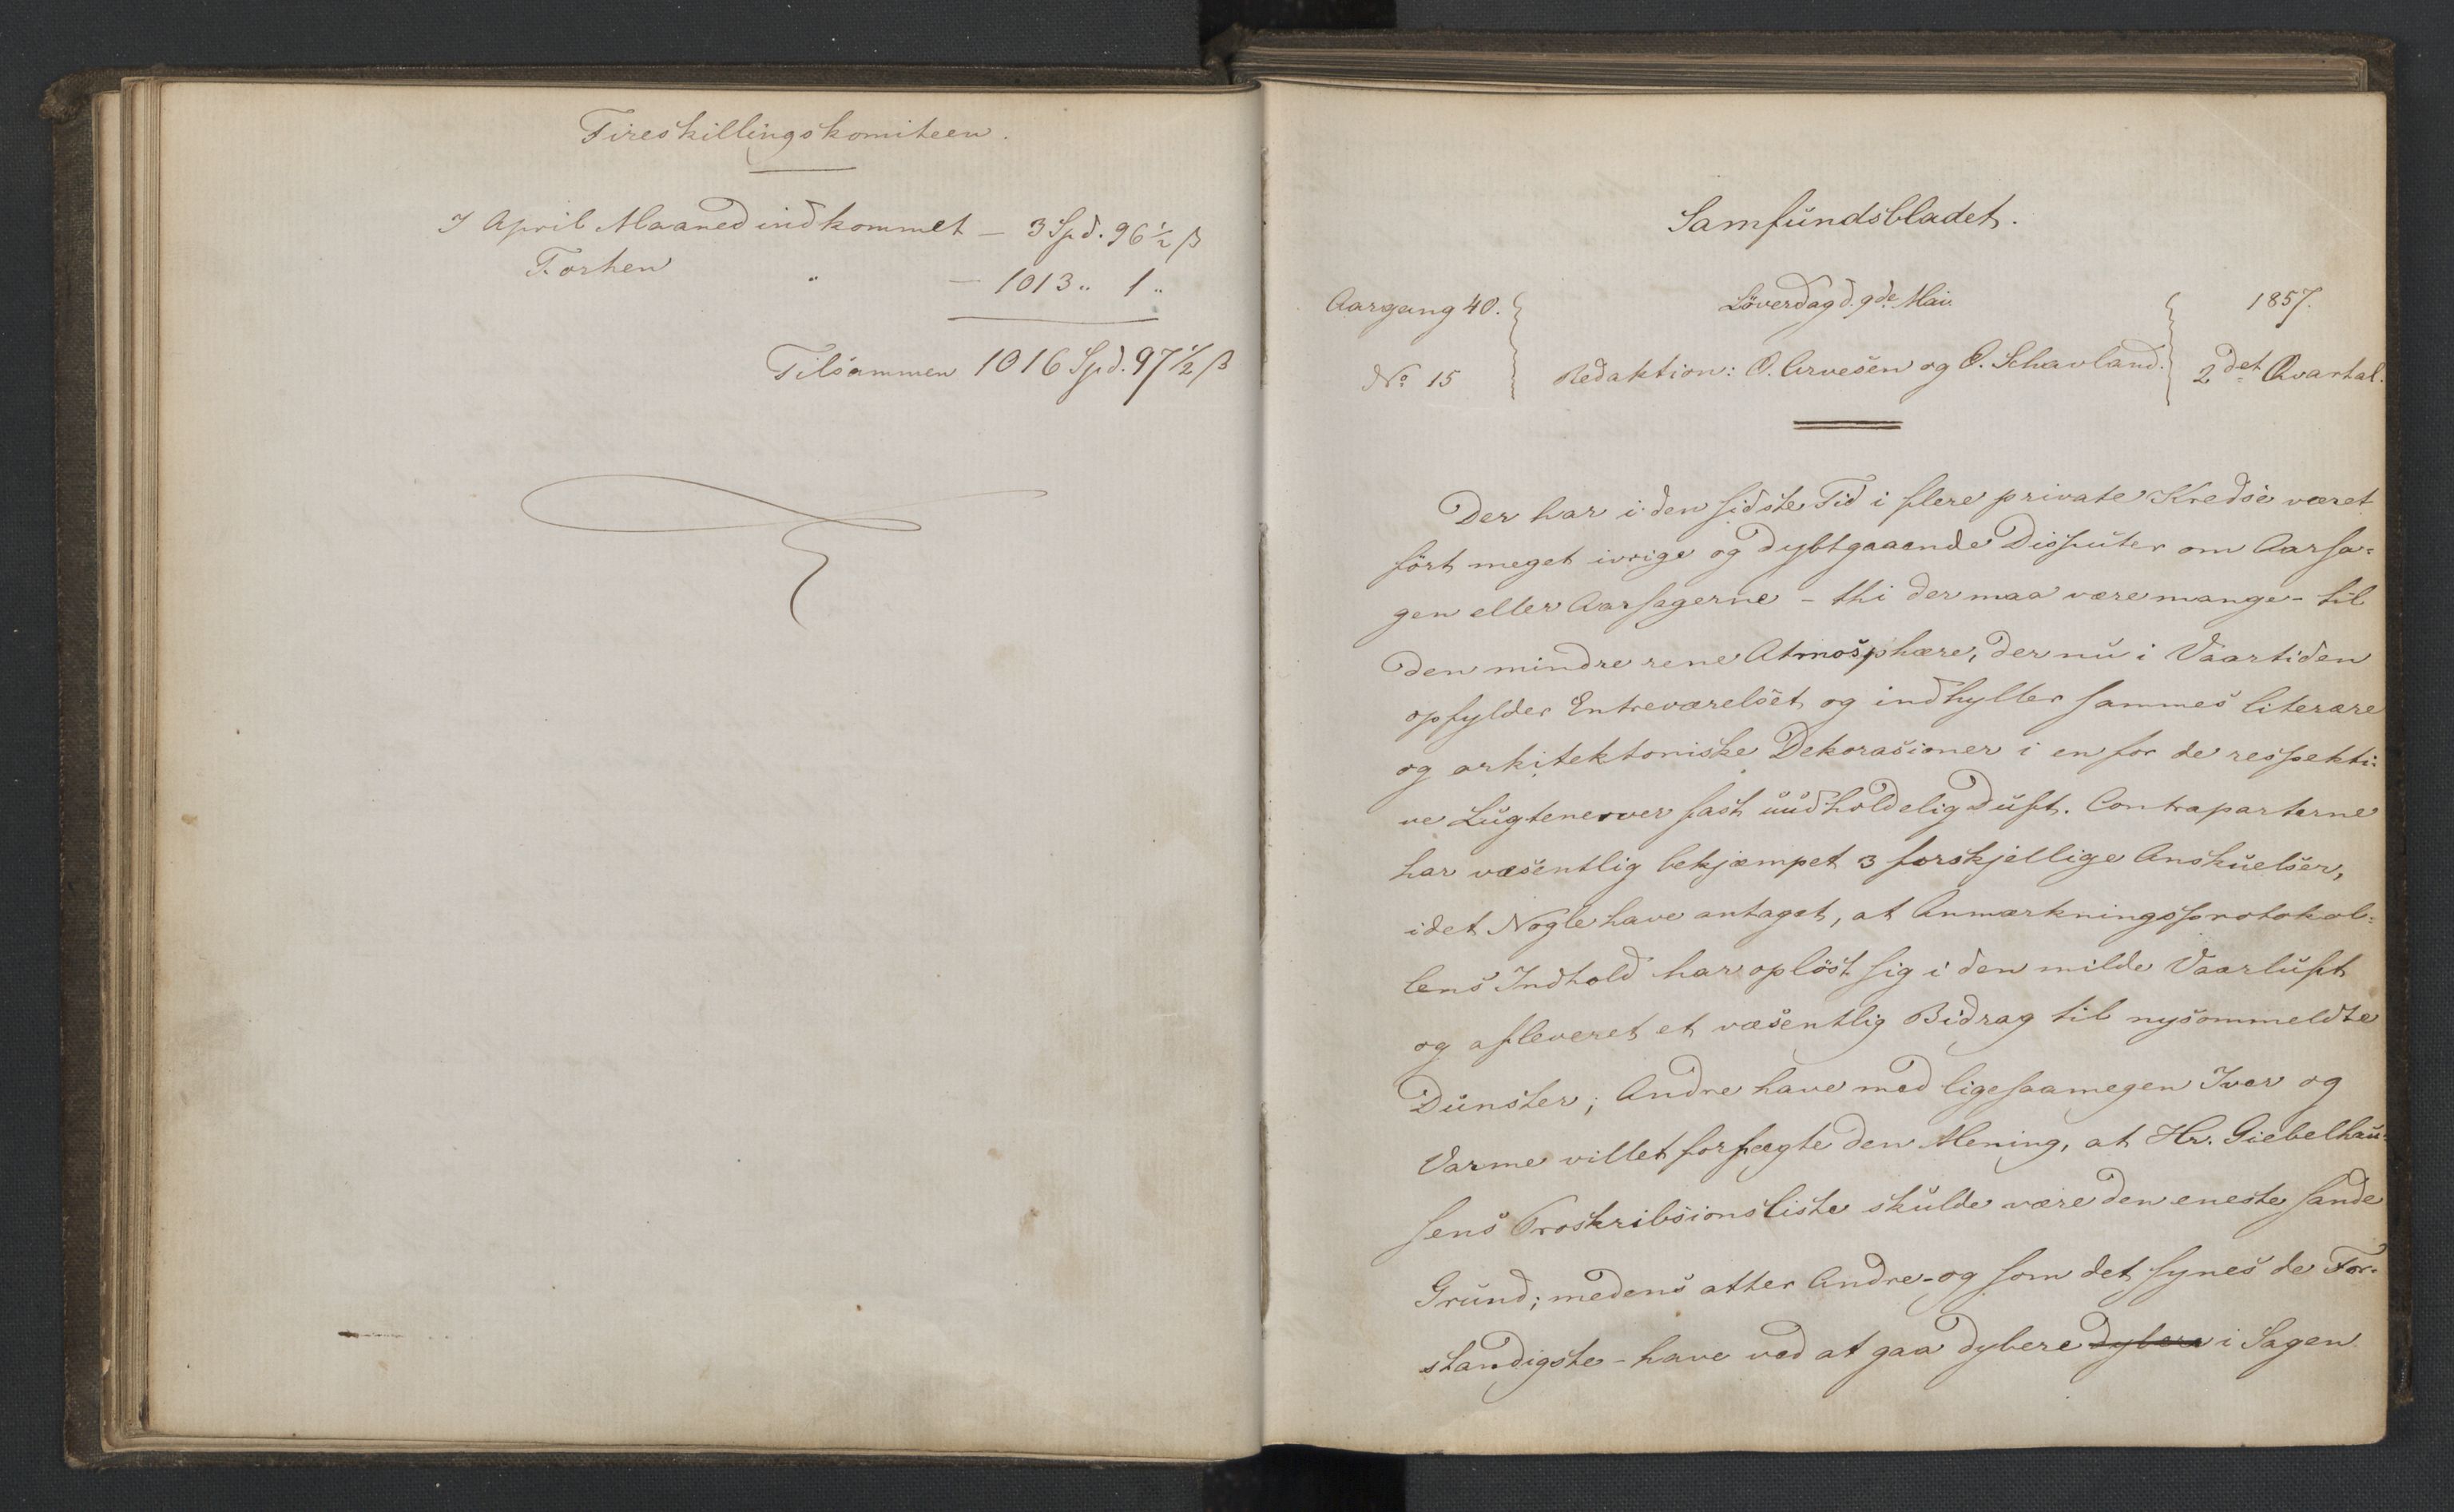 Fireskillingskomiteen.
I April Maaned indkommet – 3 Spd. 96 1/2 ß
Forhen " – 1013 " 1 "
Tilsammen 1016 Spd. 97 1/2 ß
Samfundsbladet.
Aargang 40. Löverdag d. 9de Mai 1857.
No 15 Redaktion: O. Arvesen og O. Schavland. 2det Qvartal.
Der har i den sidste Tid i flere private Kredse været
ført meget ivrige og dybtgaaende Disputer om Aarsa-
gen eller Aarsagerne – thi der maa være mange – til
den mindre rene Atmosphære, der nu i Vaartiden
opfylder Entreværelset og indhyller sammes literære
og arkitektoniske Dekorasioner i en for de respekti-
ve Lugtenerver fast uudholdelig Duft. Contraparterne
har væsentlig bekjæmpet 3 forskjellige Anskuelser,
idet Nogle have antaget, at Anmærkningsprotokol-
lens Indhold har opløst sig i den milde Vaarluft
og afleveret et væsentlig Bidrag til nysommeldte
Dunster; Andre have med ligesaamegen Iver og
Varme villet forfægte den Mening, at Hr. Giebelhau-
sens Proskribsionsliste skulde være den eneste sande
Grund; medens atter Andre – og som det synes de For-
standigste – have ved at gaa dybere dybere i Sagen